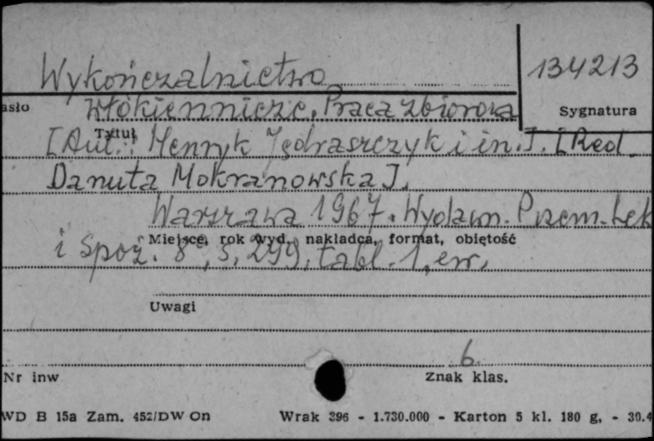 Wykończalnictwo 134213
asło włókiennicze. Praca zbiorowa Sygnatura
Tytuł
[Aut.: Henryk Jędraszczyk i in.]. [Red.
Danuta Mokranowska].
Warszawa 1967. Wydawn. Przem. Lek
Miejsce, rok wyd., nakładca, format, objętość
i Spoż. 8°, s. 299, tabl. 1, err.
Uwagi
6
Nr inw Znak klas.
WD B 15a Zam. 452/DW On Wrak 396 - 1.730.000 - Karton 5 kl. 180 g, - 30.4